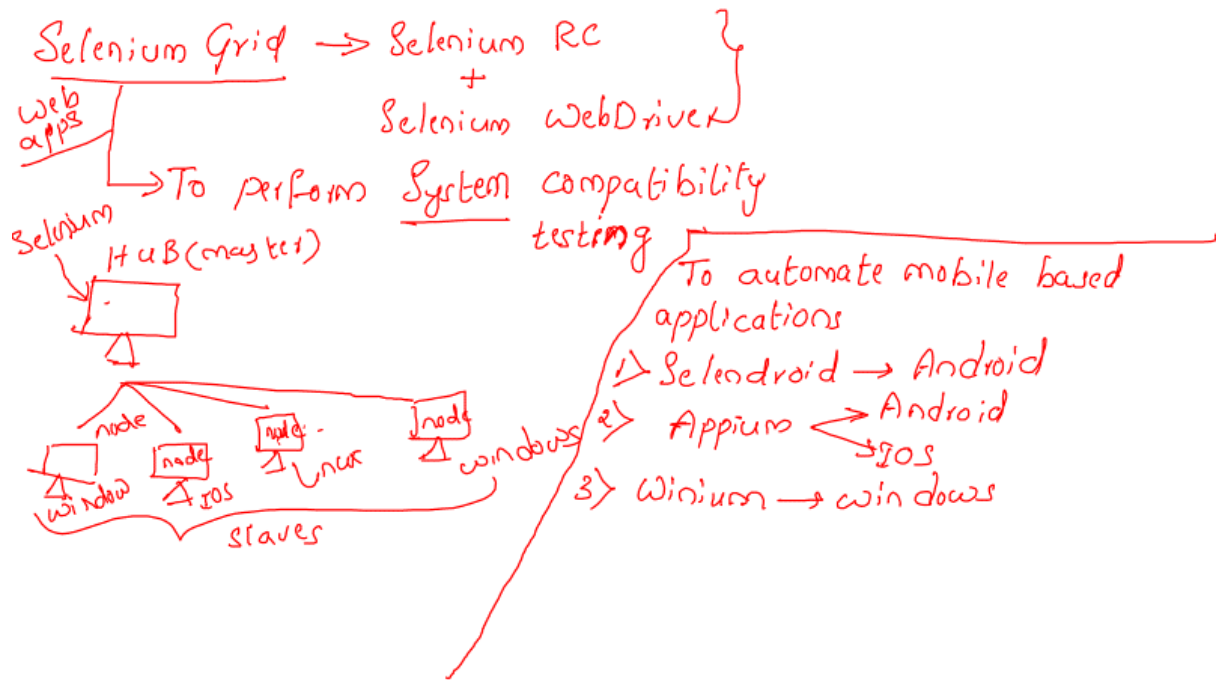 Selenium Grid → Selenium RC
+
Selenium WebDriver
web
apps
→ To perform System compatibility
testing
Selenium
HUB (master)
node
node
node
node
window
IOS
Linux
windows
slaves
To automate mobile based
applications
1) Selendroid → Android
2) Appium → Android
→ IOS
3) Winium → windows